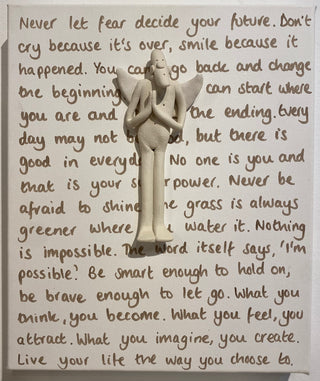 Never let fear decide your future. Don't
cry because it's over, smile because it
happened. You ca go back and change
the beginning can start where
you are and the ending. Every
day may not d, but there is
good in everyd No one is you and
that is your s power. Never be
afraid to shine e grass is always
greener where u water it. Nothing
is impossible. The word itself says, 'I'm
possible'! Be smart enough to hold on,
be brave enough to let go. What you
think, you become. What you feel, you
attract. What you imagine, you create.
Live your life the way you choose to.